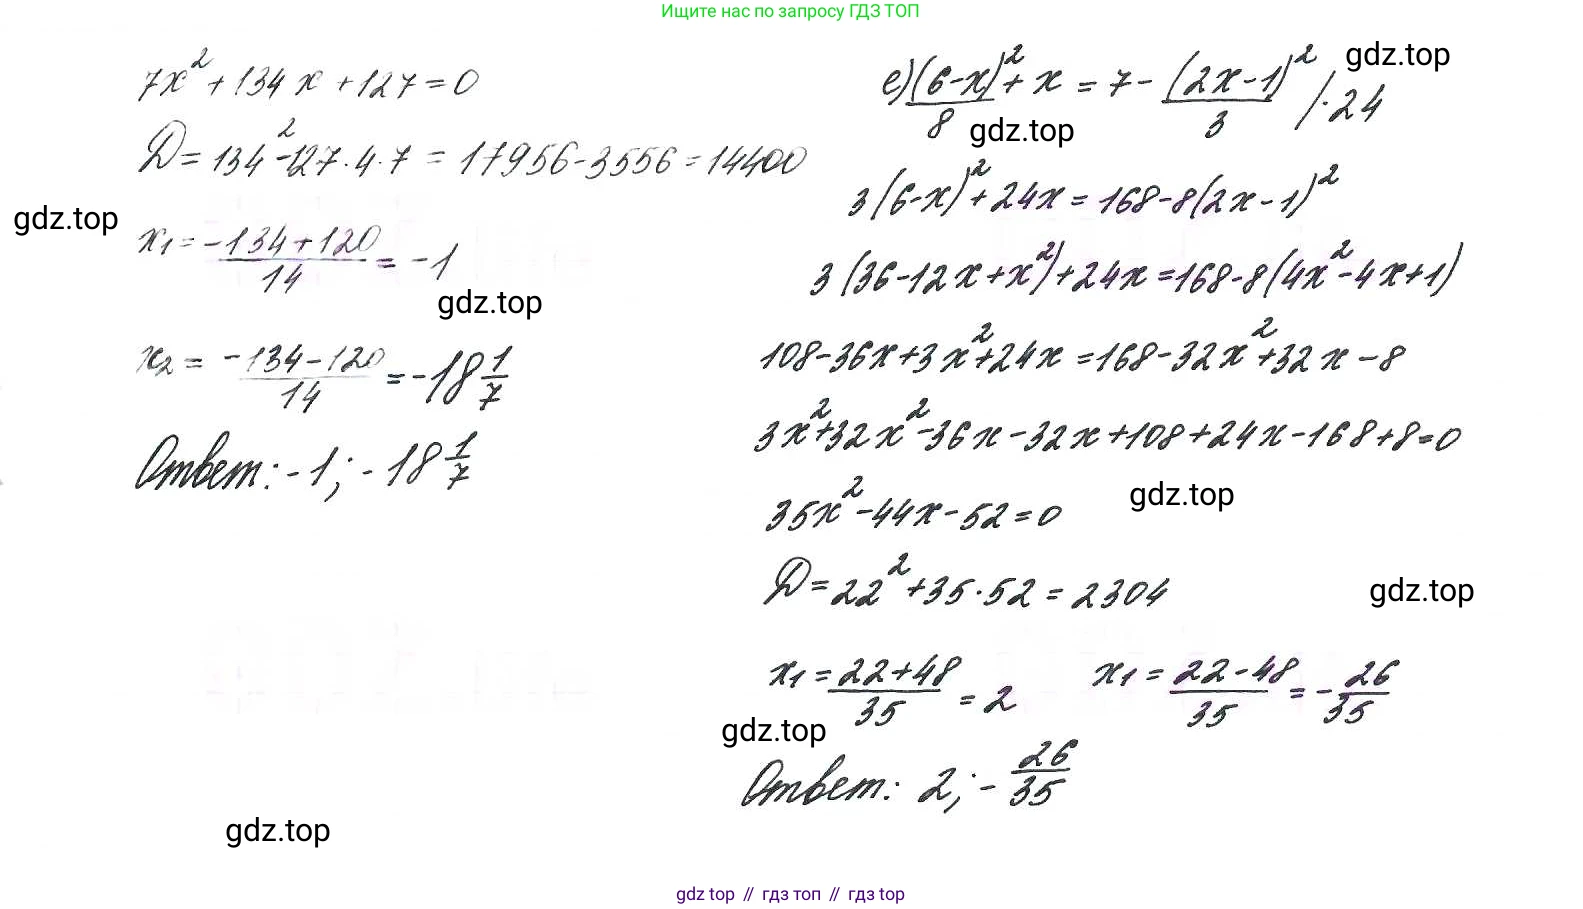 Ищите нас по запросу ГДЗ ТОП
7x² + 134x + 127 = 0
Д = 134² - 127 · 4 · 7 = 17956 - 3556 = 14400
gdz.top
x₁ = (-134 + 120)/14 = -1
gdz.top
x₂ = (-134 - 120)/14 = -18 1/7
Ответ: -1; -18 1/7
gdz.top
е) (6-x)²/8 + x = 7 - (2x-1)²/3 / · 24
gdz.top
gdz.top
3(6-x)² + 24x = 168 - 8(2x-1)²
3(36-12x+x²) + 24x = 168 - 8(4x²-4x+1)
108 - 36x + 3x² + 24x = 168 - 32x² + 32x - 8
3x² + 32x² - 36x - 32x + 108 + 24x - 168 + 8 = 0
35x² - 44x - 52 = 0
gdz.top
Д = 22² + 35 · 52 = 2304
gdz.top
x₁ = (22+48)/35 = 2 x₁ = (22-48)/35 = -26/35
gdz.top
Ответ: 2; -26/35
gdz top // гдз топ // gdz top